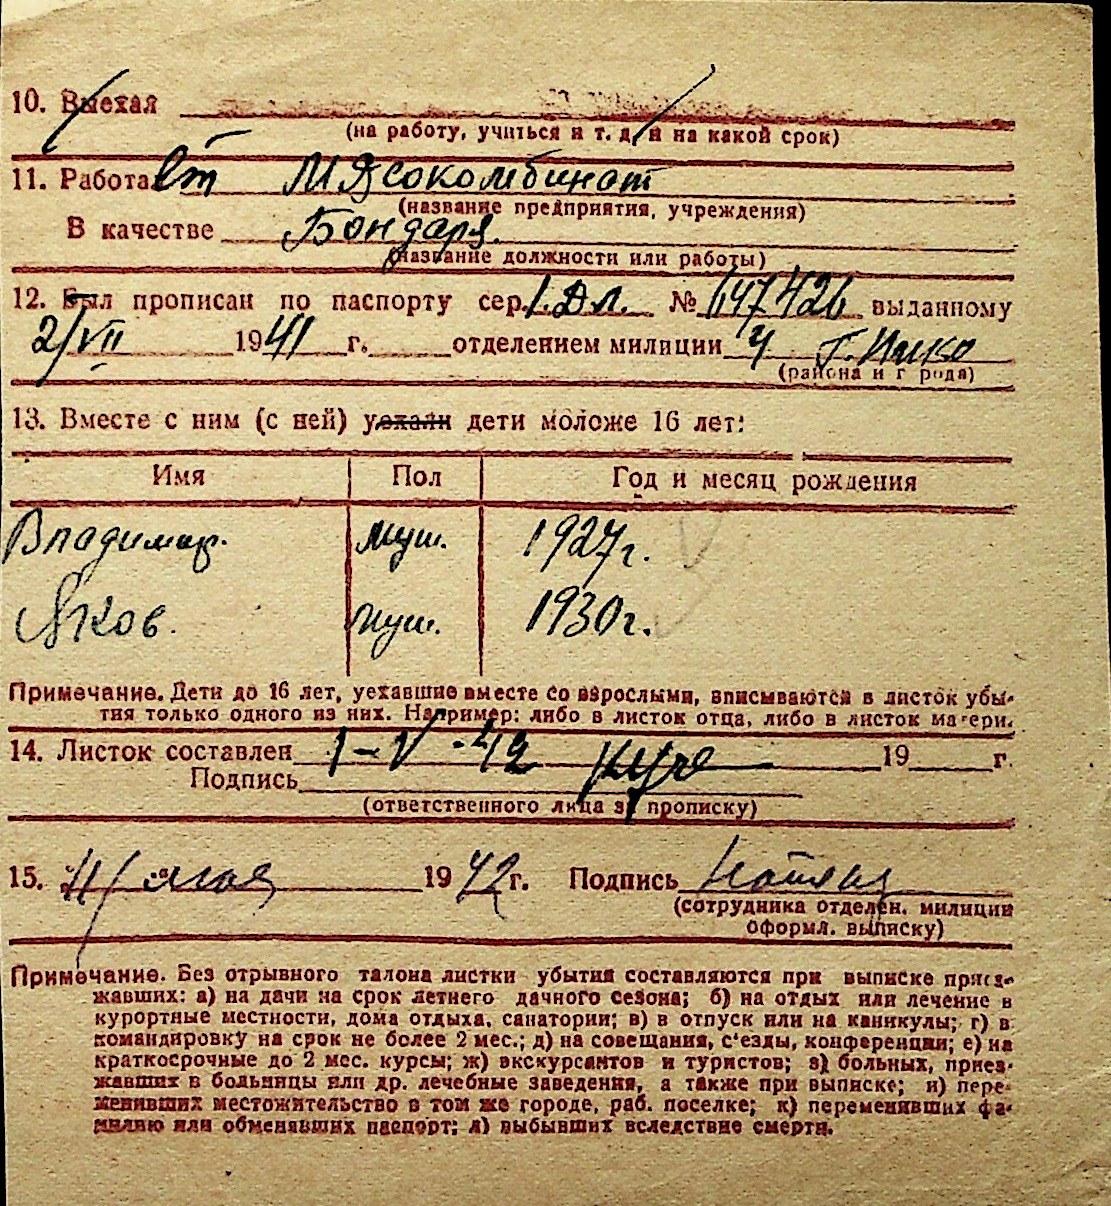 10. Выехал
(на работу, учиться и т. д. и на какой срок)
11. Работает Мясокомбинат
(название предприятия, учреждения)
В качестве Бондаря.
(название должности или работы)
12. Был прописан по паспорту сер. I. Дл. № 647426 выданному
2/VII 1941 г. отделением милиции 4
(района и города)
13. Вместе с ним (с ней) уехали дети моложе 16 лет:
Имя Пол Год и месяц рождения
Владимир. муж. 1927 г.
Яков. муж. 1930 г.
Примечание. Дети до 16 лет, уехавшие вместе со взрослыми, вписываются в листок убы-
тия только одного из них. Например: либо в листок отца, либо в листок матери.
14. Листок составлен 1-V-42 19 г.
Подпись
(ответственного лица за прописку)
15. 4/ мая 1942 г. Подпись
(сотрудника отделен. милиции
оформл. выписку)
Примечание. Без отрывного талона листки убытия составляются при выписке приез-
жавших: а) на дачи на срок летнего дачного сезона; б) на отдых или лечение в
курортные местности, дома отдыха, санатории; в) в отпуск или на каникулы; г) в
командировку на срок не более 2 мес.; д) на совещания, с'езды, конференции; е) на
краткосрочные до 2 мес. курсы; ж) экскурсантов и туристов; з) больных, приез-
жавших в больницы или др. лечебные заведения, а также при выписке; и) пере-
менивших местожительство в том же городе, раб. поселке; к) переменивших фа-
милию или обменявших паспорт; л) выбывших вследствие смерти.